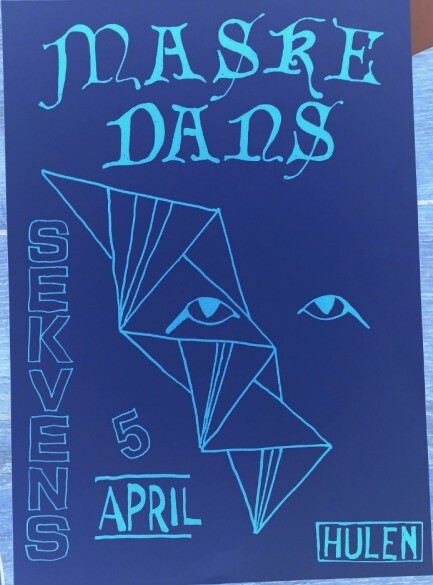 MASKE
DANS
SEKVENS
5
APRIL
HULEN